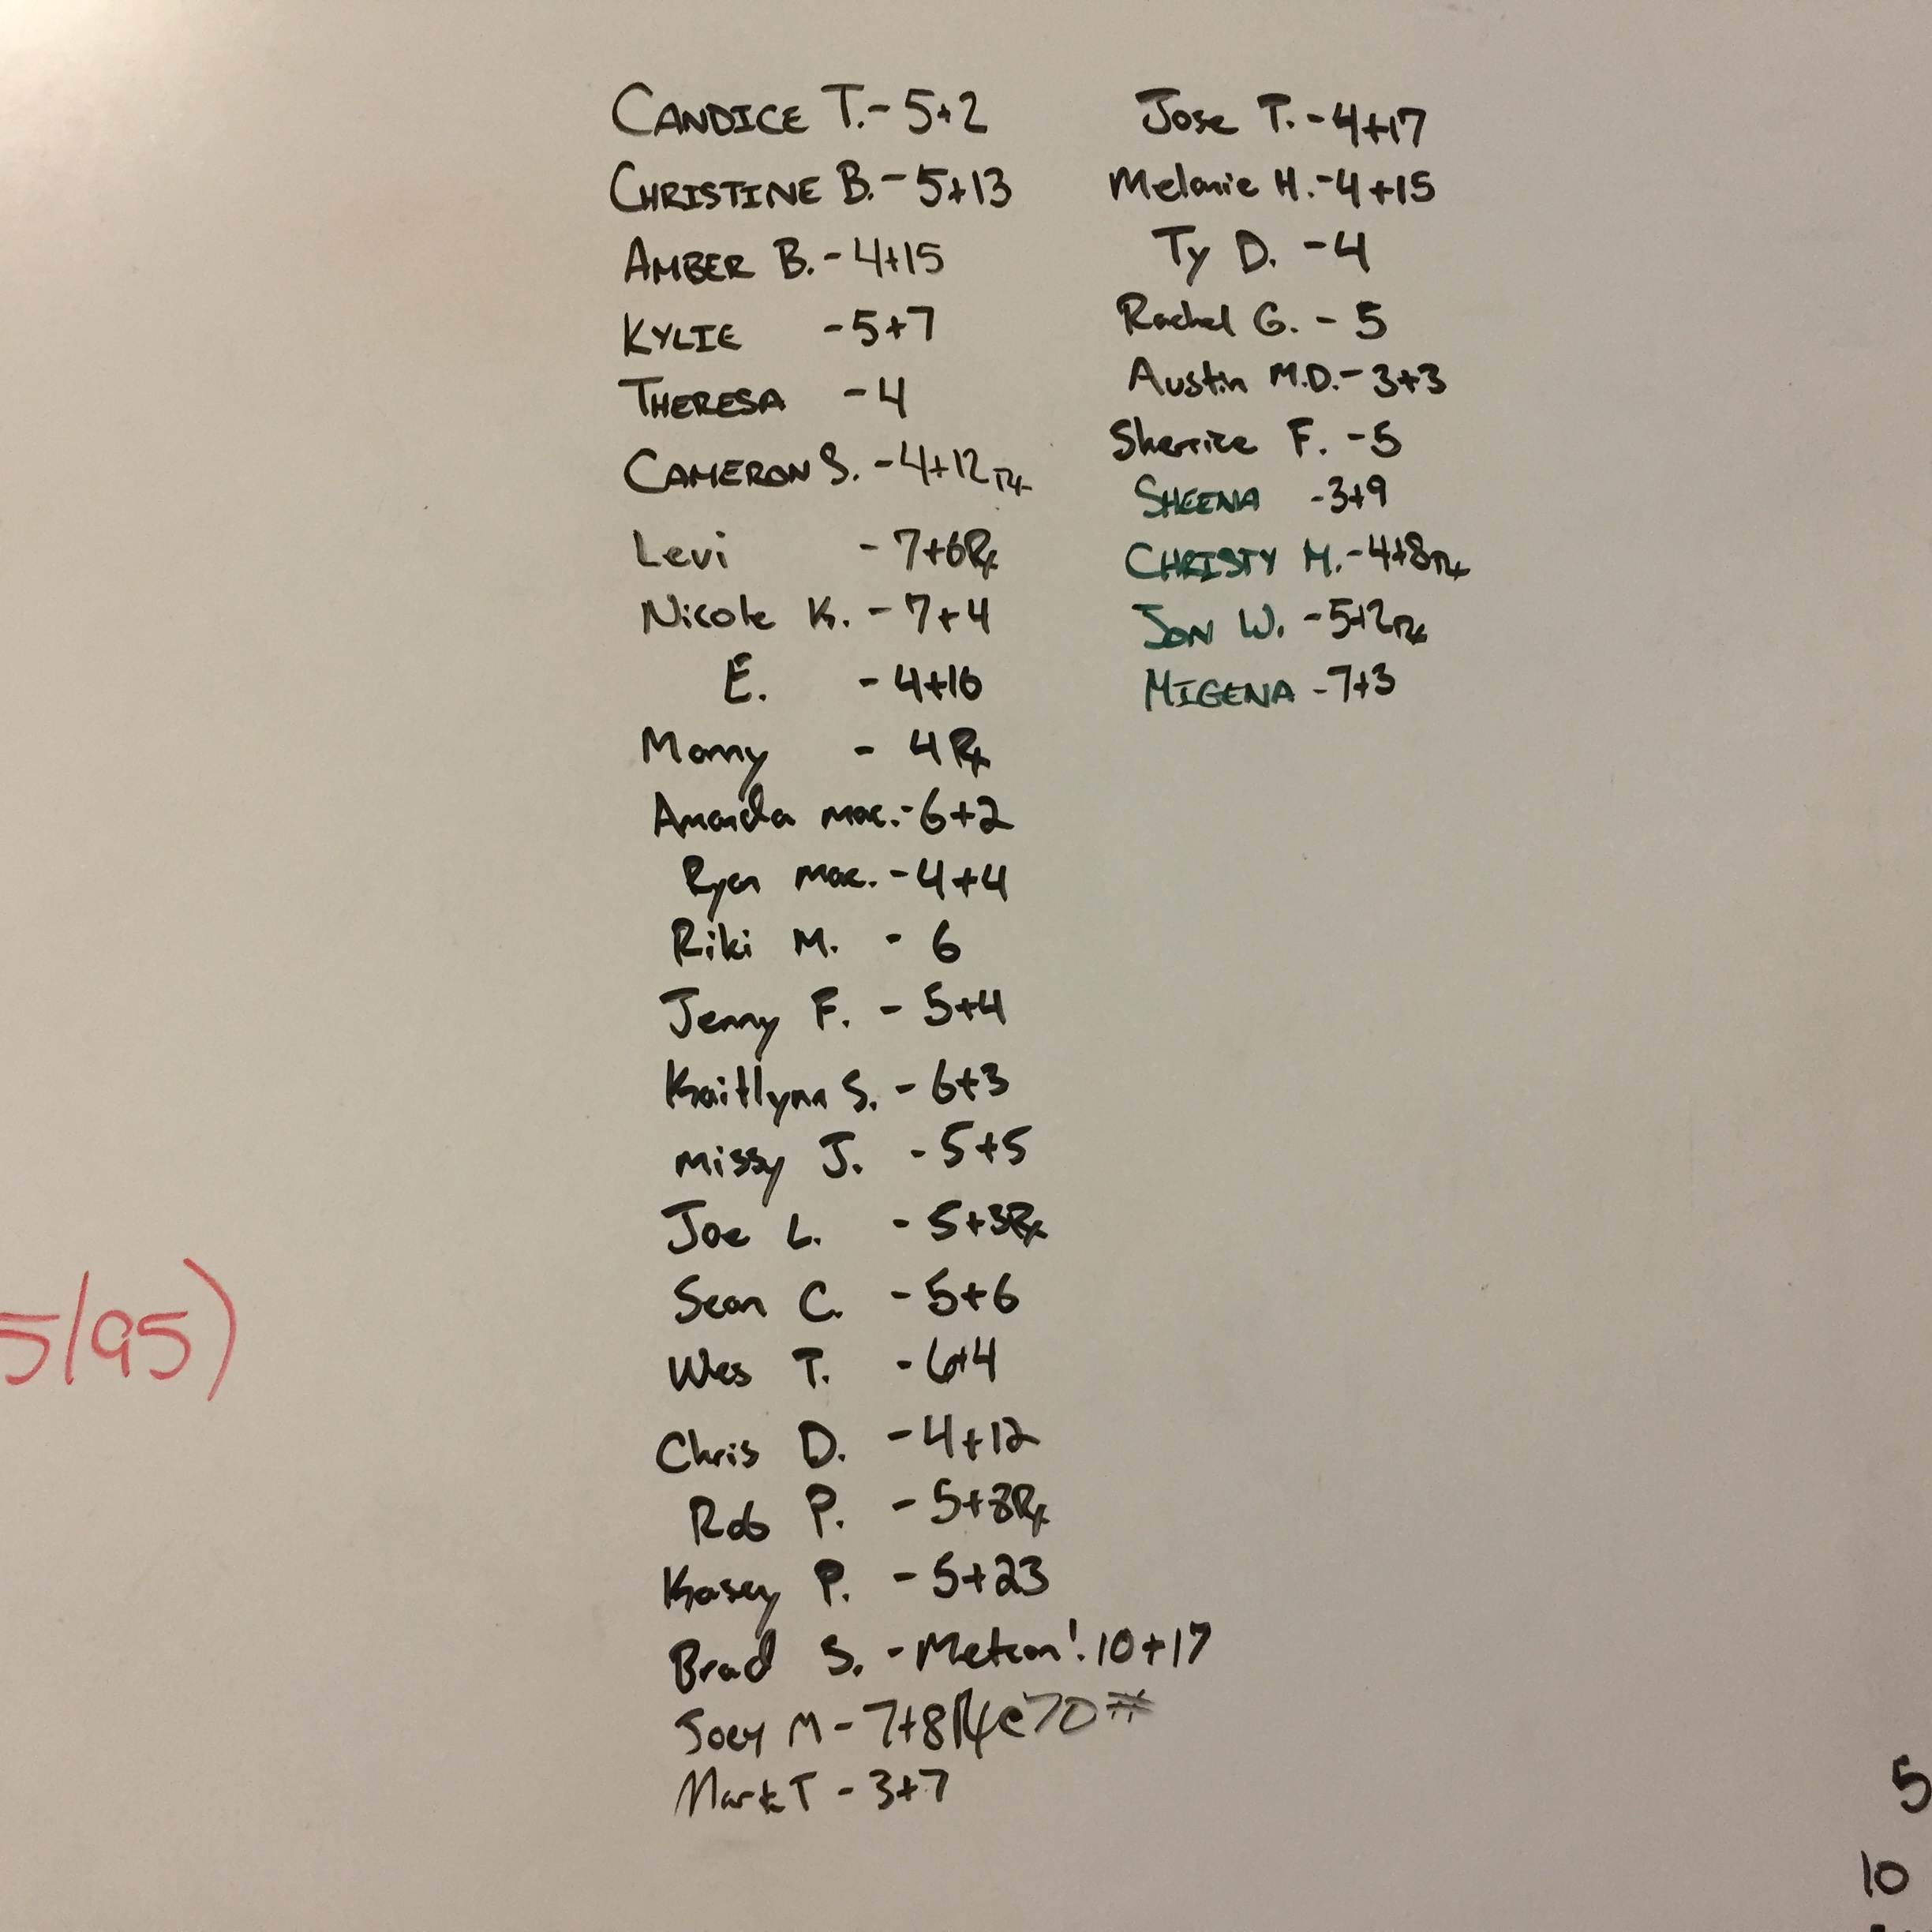 CANDICE T. - 5+2
CHRISTINE B. - 5+13
AMBER B. - 4+15
KYLIE - 5+7
THERESA - 4
CAMERON S. - 4+12 Rx
Levi - 7+6 Rx
Nicole K. - 7+4
E. - 4+16
Manny - 4 Rx
Amanda Mac. - 6+2
Ryan Mac. - 4+4
Riki M. - 6
Jenny F. - 5+4
Kaitlynn S. - 6+3
Missy J. - 5+5
Joe L. - 5+3 Rx
Sean C. - 5+6
Wes T. - 6+4
Chris D. - 4+12
Rob P. - 5+8 Rx
Kasey P. - 5+23
Brad S. - Metcon! 10+17
Joey M - 7+8 Rx @ 70#
Mark T - 3+7
Jose T. - 4+17
Melanie H. - 4+15
Ty D. - 4
Rachel G. - 5
Austin M.D. - 3+3
Sherrice F. - 5
SHEENA - 3+9
CHRISTY M. - 4+8 Rx
JON W. - 5+2 Rx
MIGENA - 7+3
5/95)
5
10